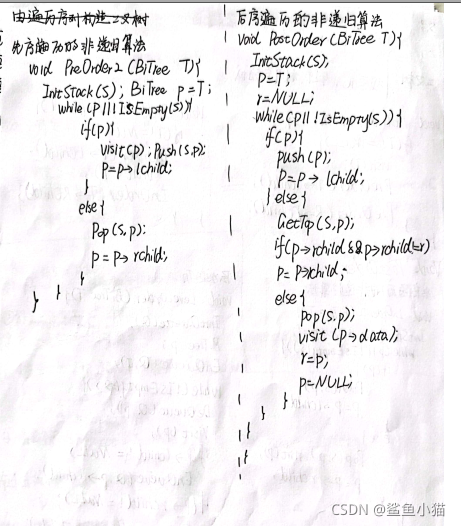 由遍历序列构造二叉树
先序遍历的非递归算法
void PreOrder2 (BiTree T){
IntStack(S); BiTree p=T;
while (P||!IsEmpty(S)){
if(p){
visit(p); Push(S,p);
P=p→lchild;
}
else{
Pop(S,p);
p=p→rchild;
}
}
}
后序遍历的非递归算法
void PostOrder(BiTree T){
IntStack(S);
P=T;
r=NULL;
while(P||!IsEmpty(S)){
if(p){
push(p);
P=p→lchild;
}else{
GetTop(S,p);
if(p→rchild&&p→rchild!=r)
p=p→rchild;
else{
pop(S,p);
visit(p→data);
r=p;
p=NULL;
}
}
}
}
CSDN @鲨鱼小猫